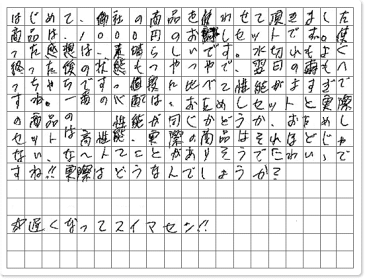 はじめて、御社の商品を使わせて頂きました
商品は、1000円のお試しセットです。使
った感想は、素晴らしいです。水切れもよく
終った後の状態もつやつやで、翌日の雨もへ
っちゃらです。値段に比べて性能がよすぎで
すね。一番の心配は、おためしセットと実際
の商品の 性能が同じかどうか、おためし
セットは高性能、実際の商品はそれほどじゃ
ない、な〜んてことがありそうでこわいっで
すね!!実際はどうなんでしょうか?
遅くなってスイマセン!!